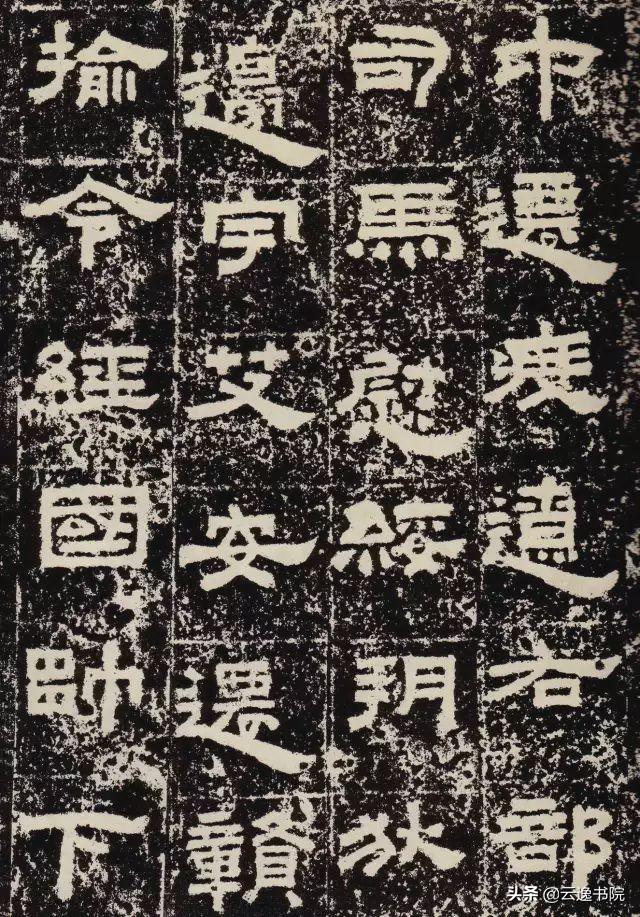 中遷度遼右部
司馬慰綏朔狄
邊宇艾安遷贛
揄令經國帥下
头条 @云逸书院